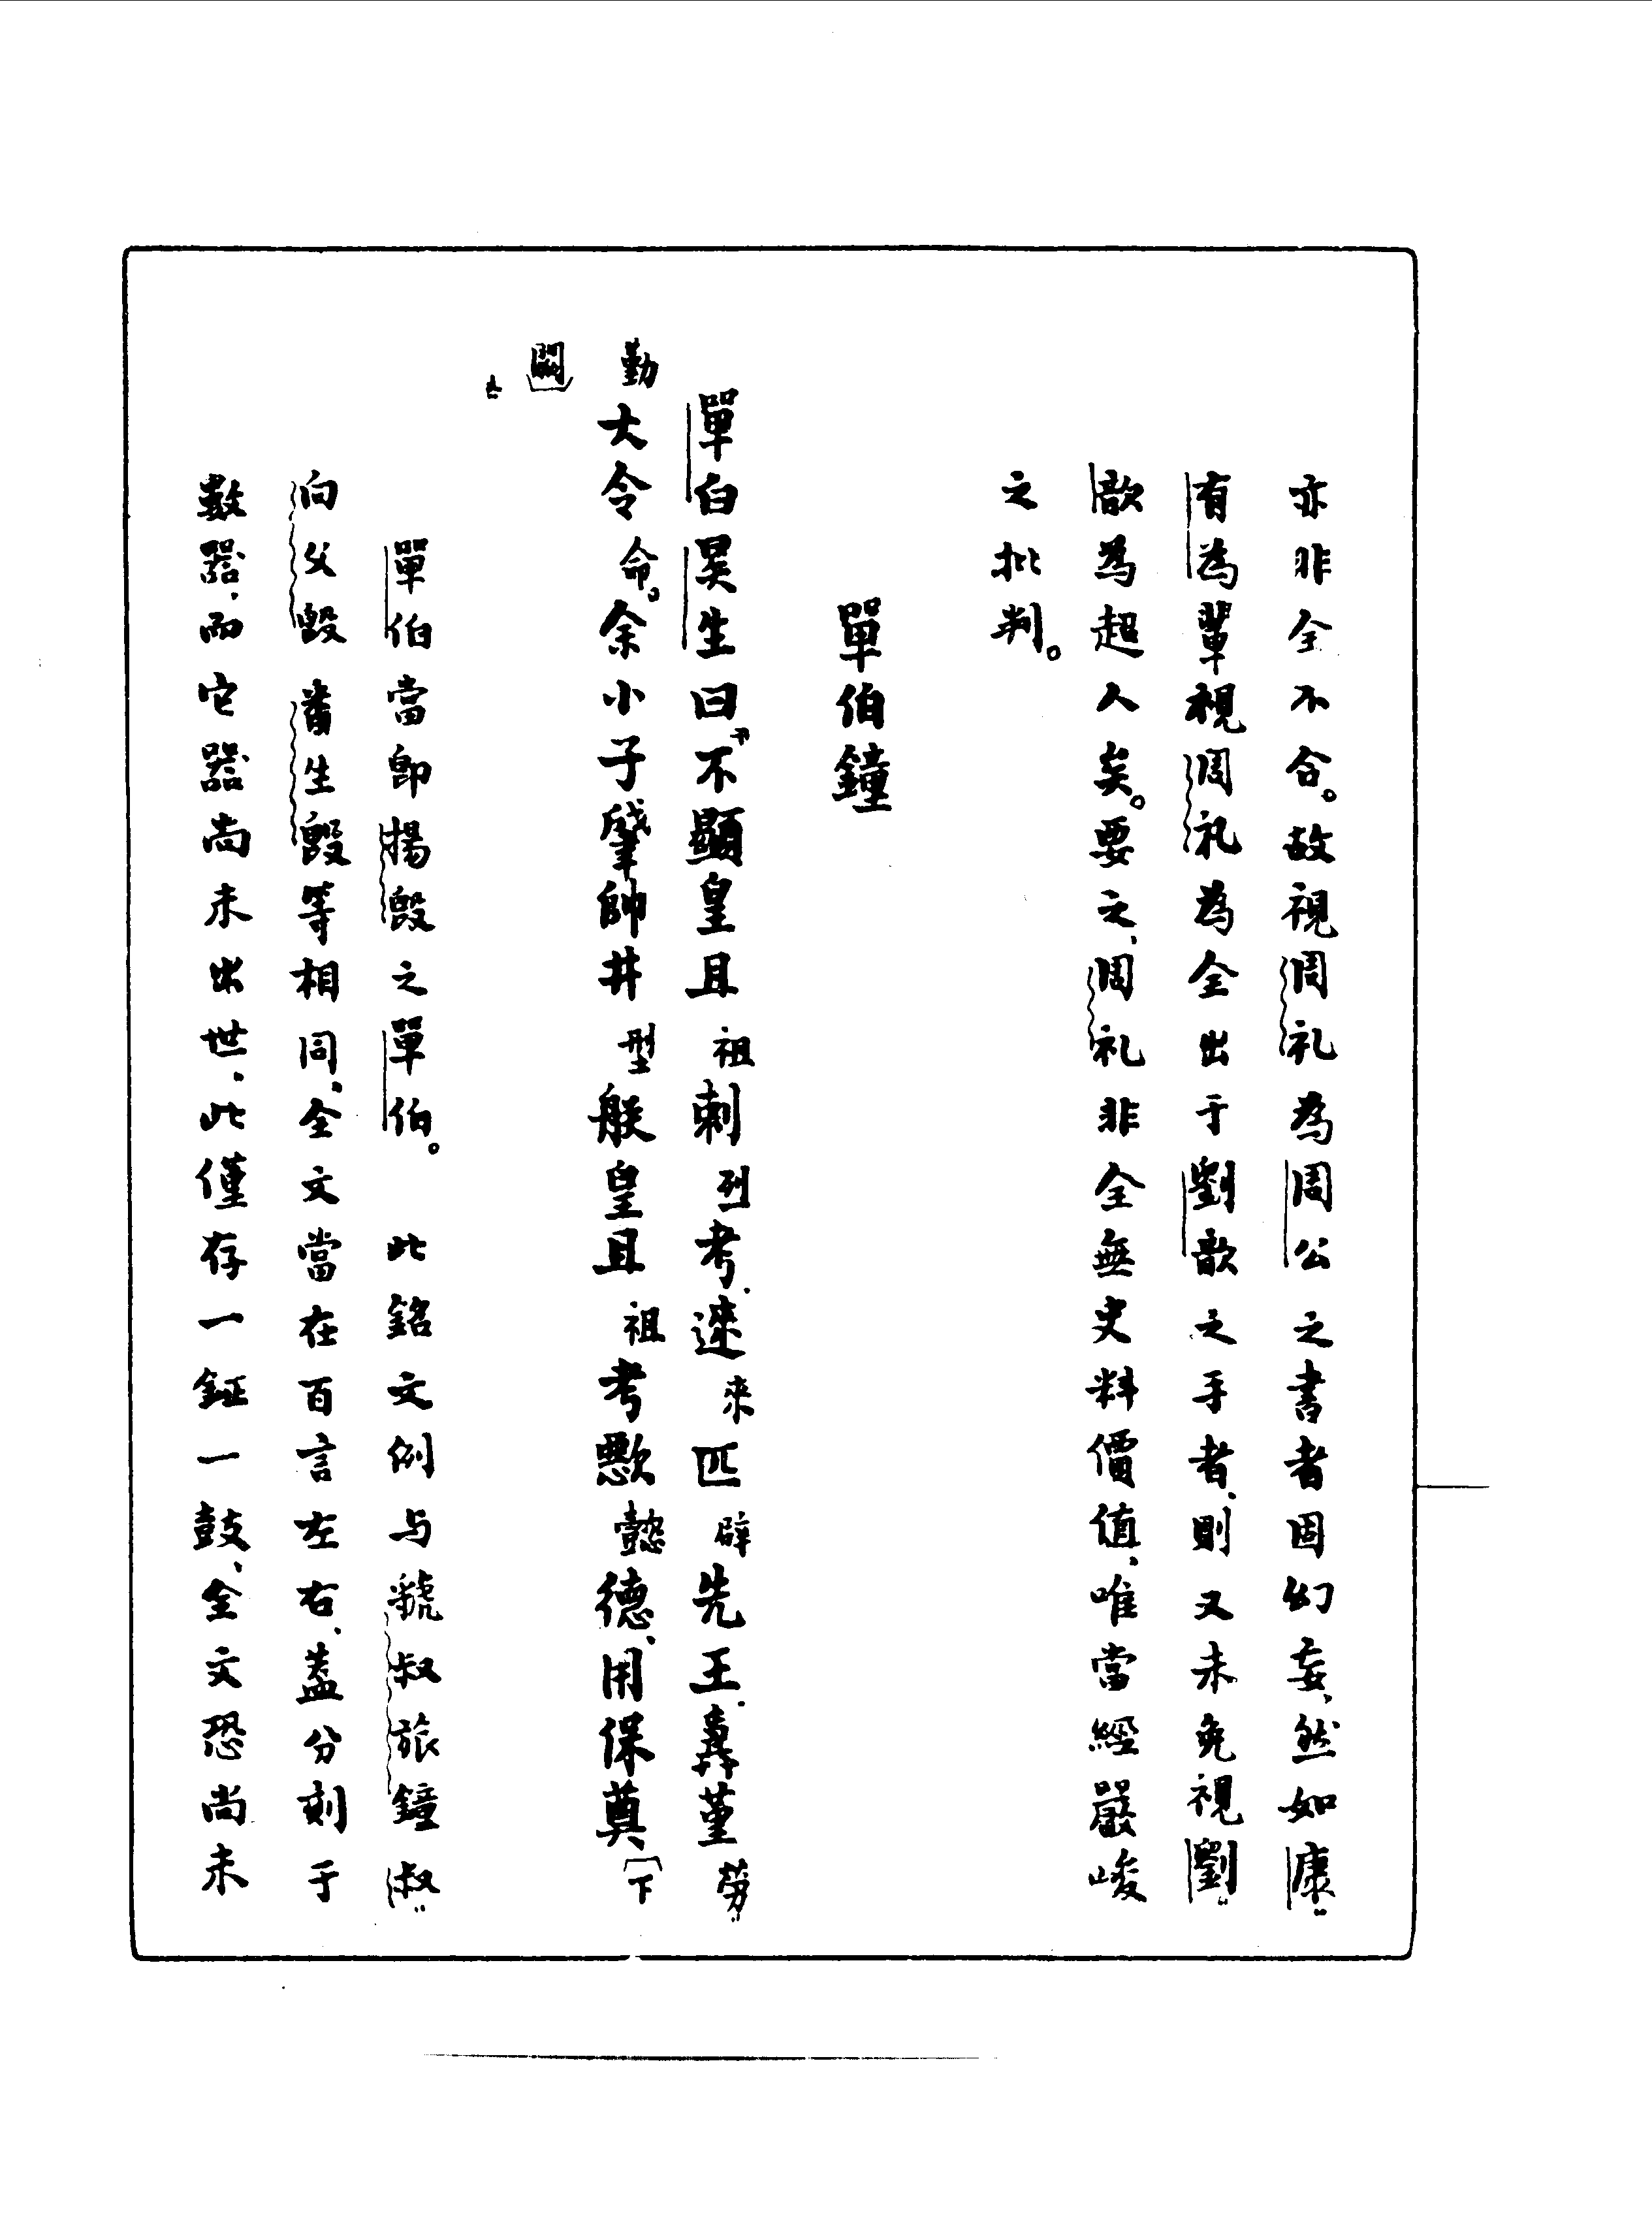 亦非全不合。故視周礼為周公之書者固幻妄、然如康
有為輩視周礼為全出于劉歆之手者、則又未免視劉
歆為超人矣。要之、周礼非全無史料價值、唯當經嚴峻
之批判。
單伯鐘
單白昊生曰、不顯皇且祖剌列考、逨來匹辟先王、𤔲堇勞
勤大令命。余小子肈帥井型朕皇且祖考懿懿德、用保奠〔下
闕〕
單伯當即揚𣪘之單伯。 此銘文例与虢叔旅鐘叔
向父𣪘番生𣪘等相同、全文當在百言左右、蓋分刻于
數器、而它器尚未出世、此僅存一鉦一鼓、全文恐尚未